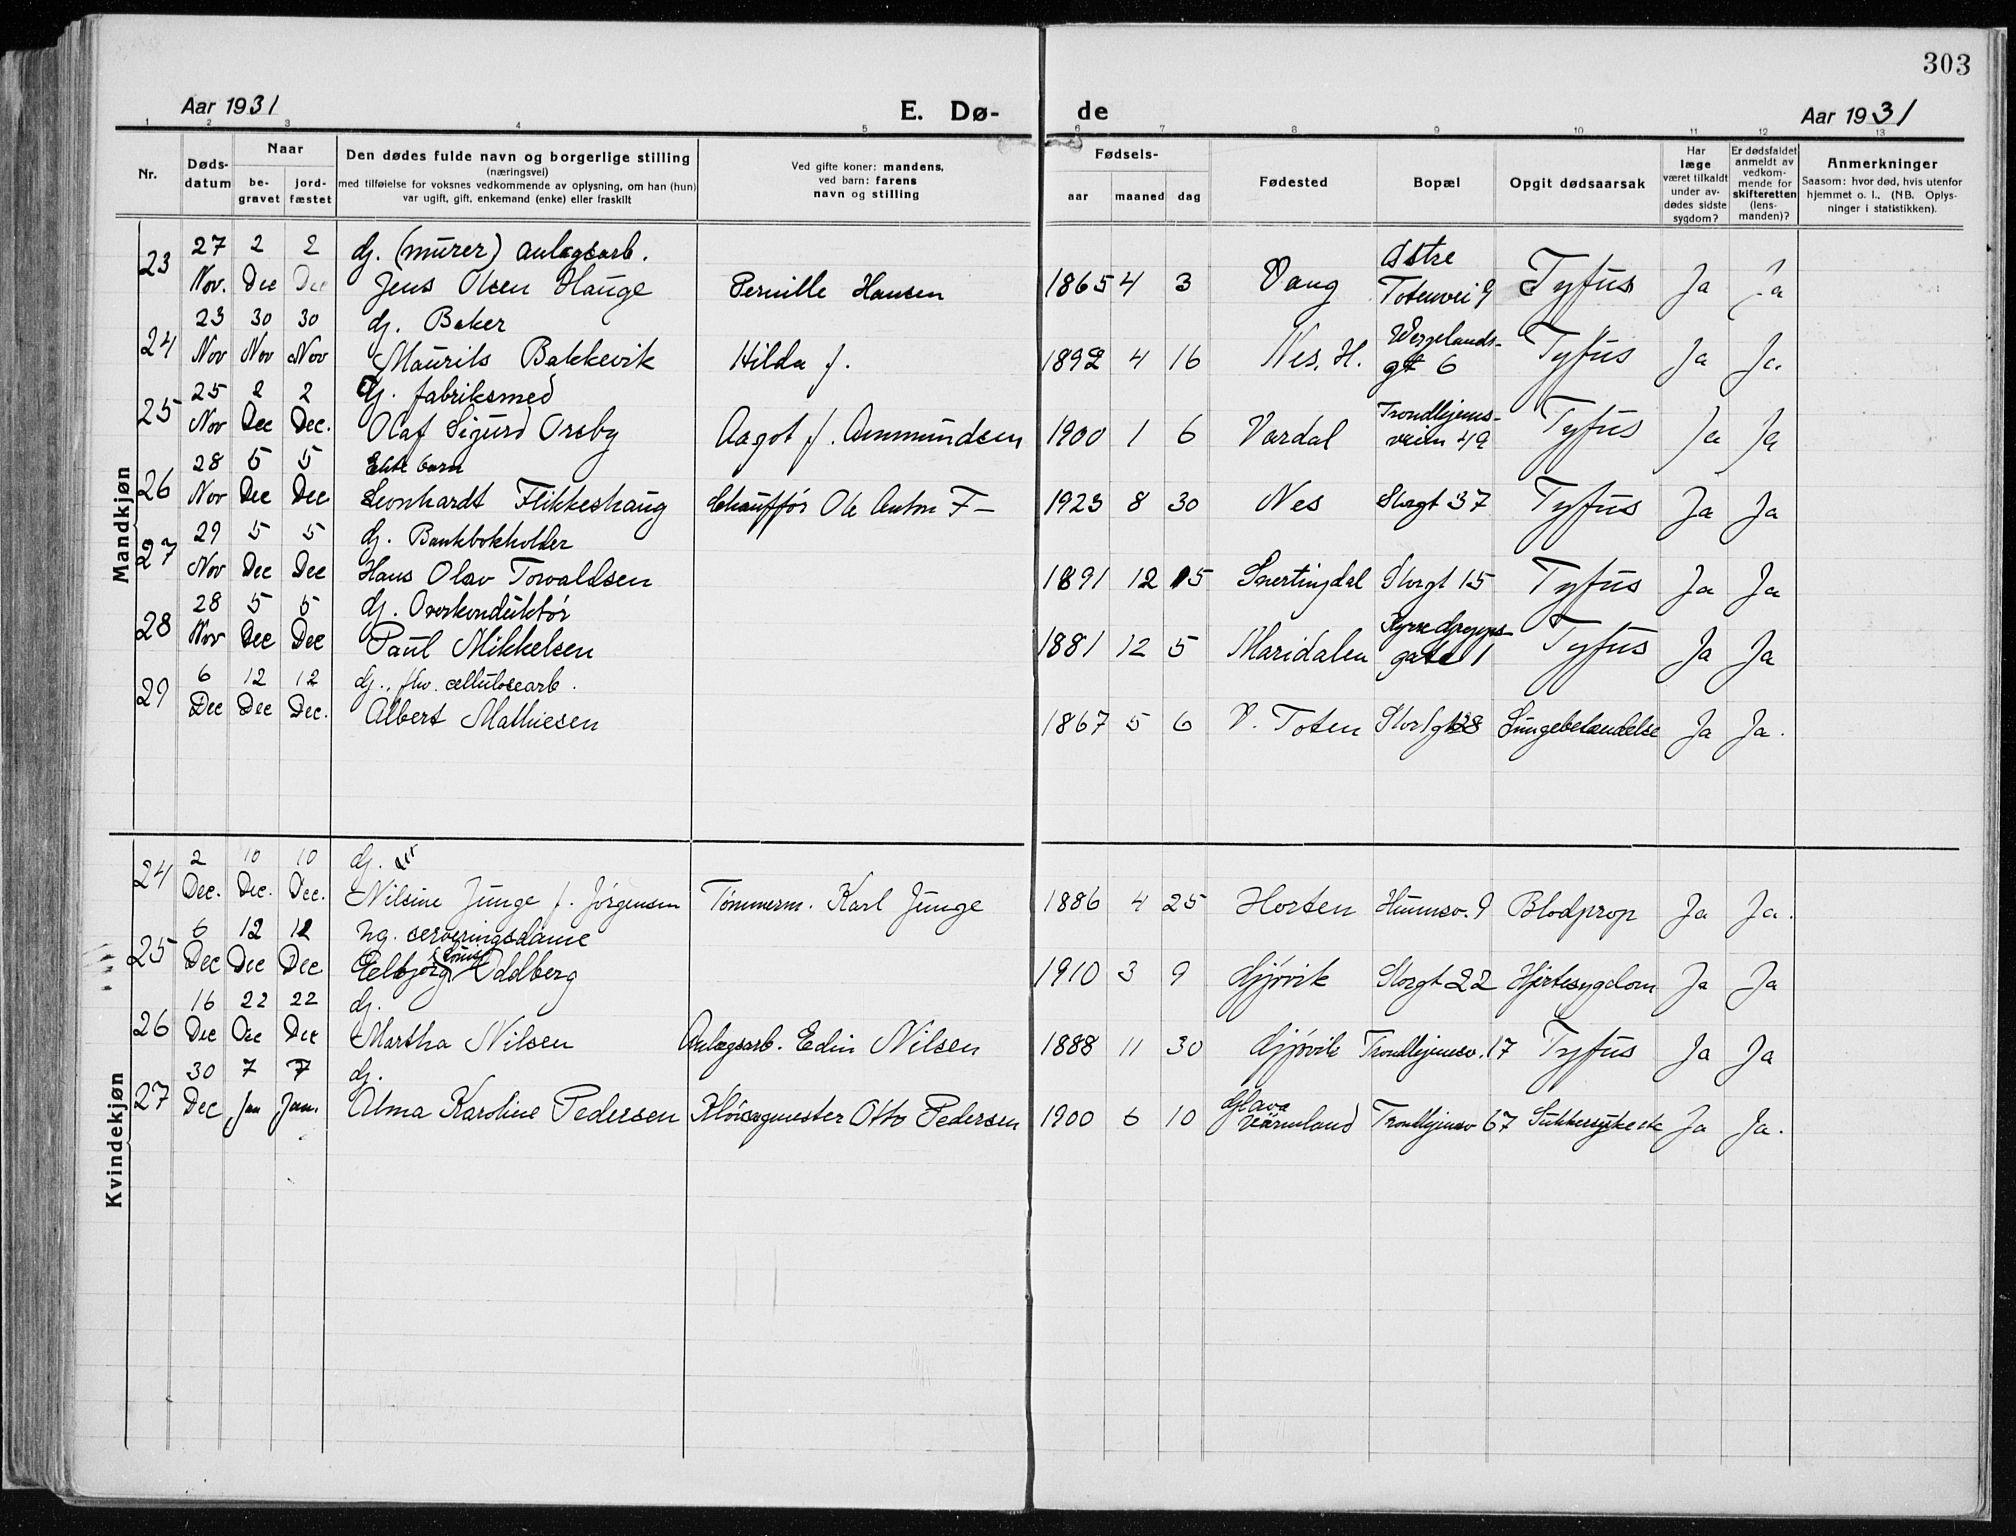 303
Aar 1931 E. Dø- de Aar 1931
1 2 3 4 5 6 7 8 9 10 11 12 13
Nr. Døds-datum Naar be-gravet jord-fæstet Den dødes fulde navn og borgerlige stilling (næringsvei) med tilføielse for voksnes vedkommende av oplysning, om han (hun) var ugift, gift, enkemand (enke) eller fraskilt Ved gifte koner: mandens, ved barn: farens navn og stilling Fødsels- aar maaned dag Fødested Bopæl Opgit dødsaarsak Har læge været tilkaldt under av-dødes sidste sygdom? Er dødsfaldet anmeldt av vedkom-mende for skifteretten (lens-manden)? Anmerkninger Saasom: hvor død, hvis utenfor hjemmet o. l., (NB. Oplys-ninger i statistikken).
Mandkjøn
27 2 2 dj. (murer) anlægsarb. Østre
23 Nov. Dec Dec Jens Olsen Hauge Pernille Hansen 1865 4 3 Vang Totenvei 9 Tyfus Ja Ja
23 30 30 dj. Baker Wergelands-
24 Nov Nov Nov Maurits Bakkevik Hilda f. 1892 4 16 Nes, H. gt 6 Tyfus Ja Ja.
25 2 2 dj. fabriksmed Trondhjems-
25 Nov Dec Dec. Olaf Sigurd Orsby Aagot f. Ammundsen 1900 1 6 Vardal veien 49 Tyfus Ja Ja
28 5 5 Ekte barn
26 Nov Dec Dec Leonhardt Flikkeshaug Chauffør Ole Anton F- 1923 8 30 Nes Storgt 37 Tyfus Ja Ja
29 5 5 dj. Bankbokholder
27 Nov Dec Dec Hans Olav Torvaldsen 1891 12 15 Snertingdal Storgt 15 Tyfus Ja Ja
28 5 5 dj. Overkonduktør Kyrre Grepps-
28 Nov Dec Dec Paul Mikkelsen 1881 12 5 Maridalen gate 1 Tyfus Ja Ja
6 12 12 dj., fhv. cellulosearb.
29 Dec Dec Dec. Albert Mathiesen 1867 5 6 V. Toten Storgt 28 Lungebetændelse Ja Ja.
Kvindekjøn
2 10 10 dj.
24 Dec. Dec. Dec. Nilsine Junge f. Jørgensen Tømmerm. Karl Junge 1886 4 25 Horten Hunnsv. 9 Blodprop Ja Ja.
6 12 12 ug. serveringsdame
25 Dec Dec Dec Eelbjørg Oddberg 1910 3 9 Gjøvik Storgt 22 Hjertesygdom Ja Ja
16 22 22 dj.
26 Dec Dec Dec Martha Nilsen Anlægsarb. Edin Nilsen 1888 11 30 Gjøvik Trondhjemsv. 17 Tyfus Ja Ja
30 7 7 dj. Glava
27 Dec Jan Jan. Alma Karoline Pedersen Kløvsagmester Otto Pedersen 1900 6 10 Värmland Trondhjemsv 67 Sukkersyke etc Ja Ja.